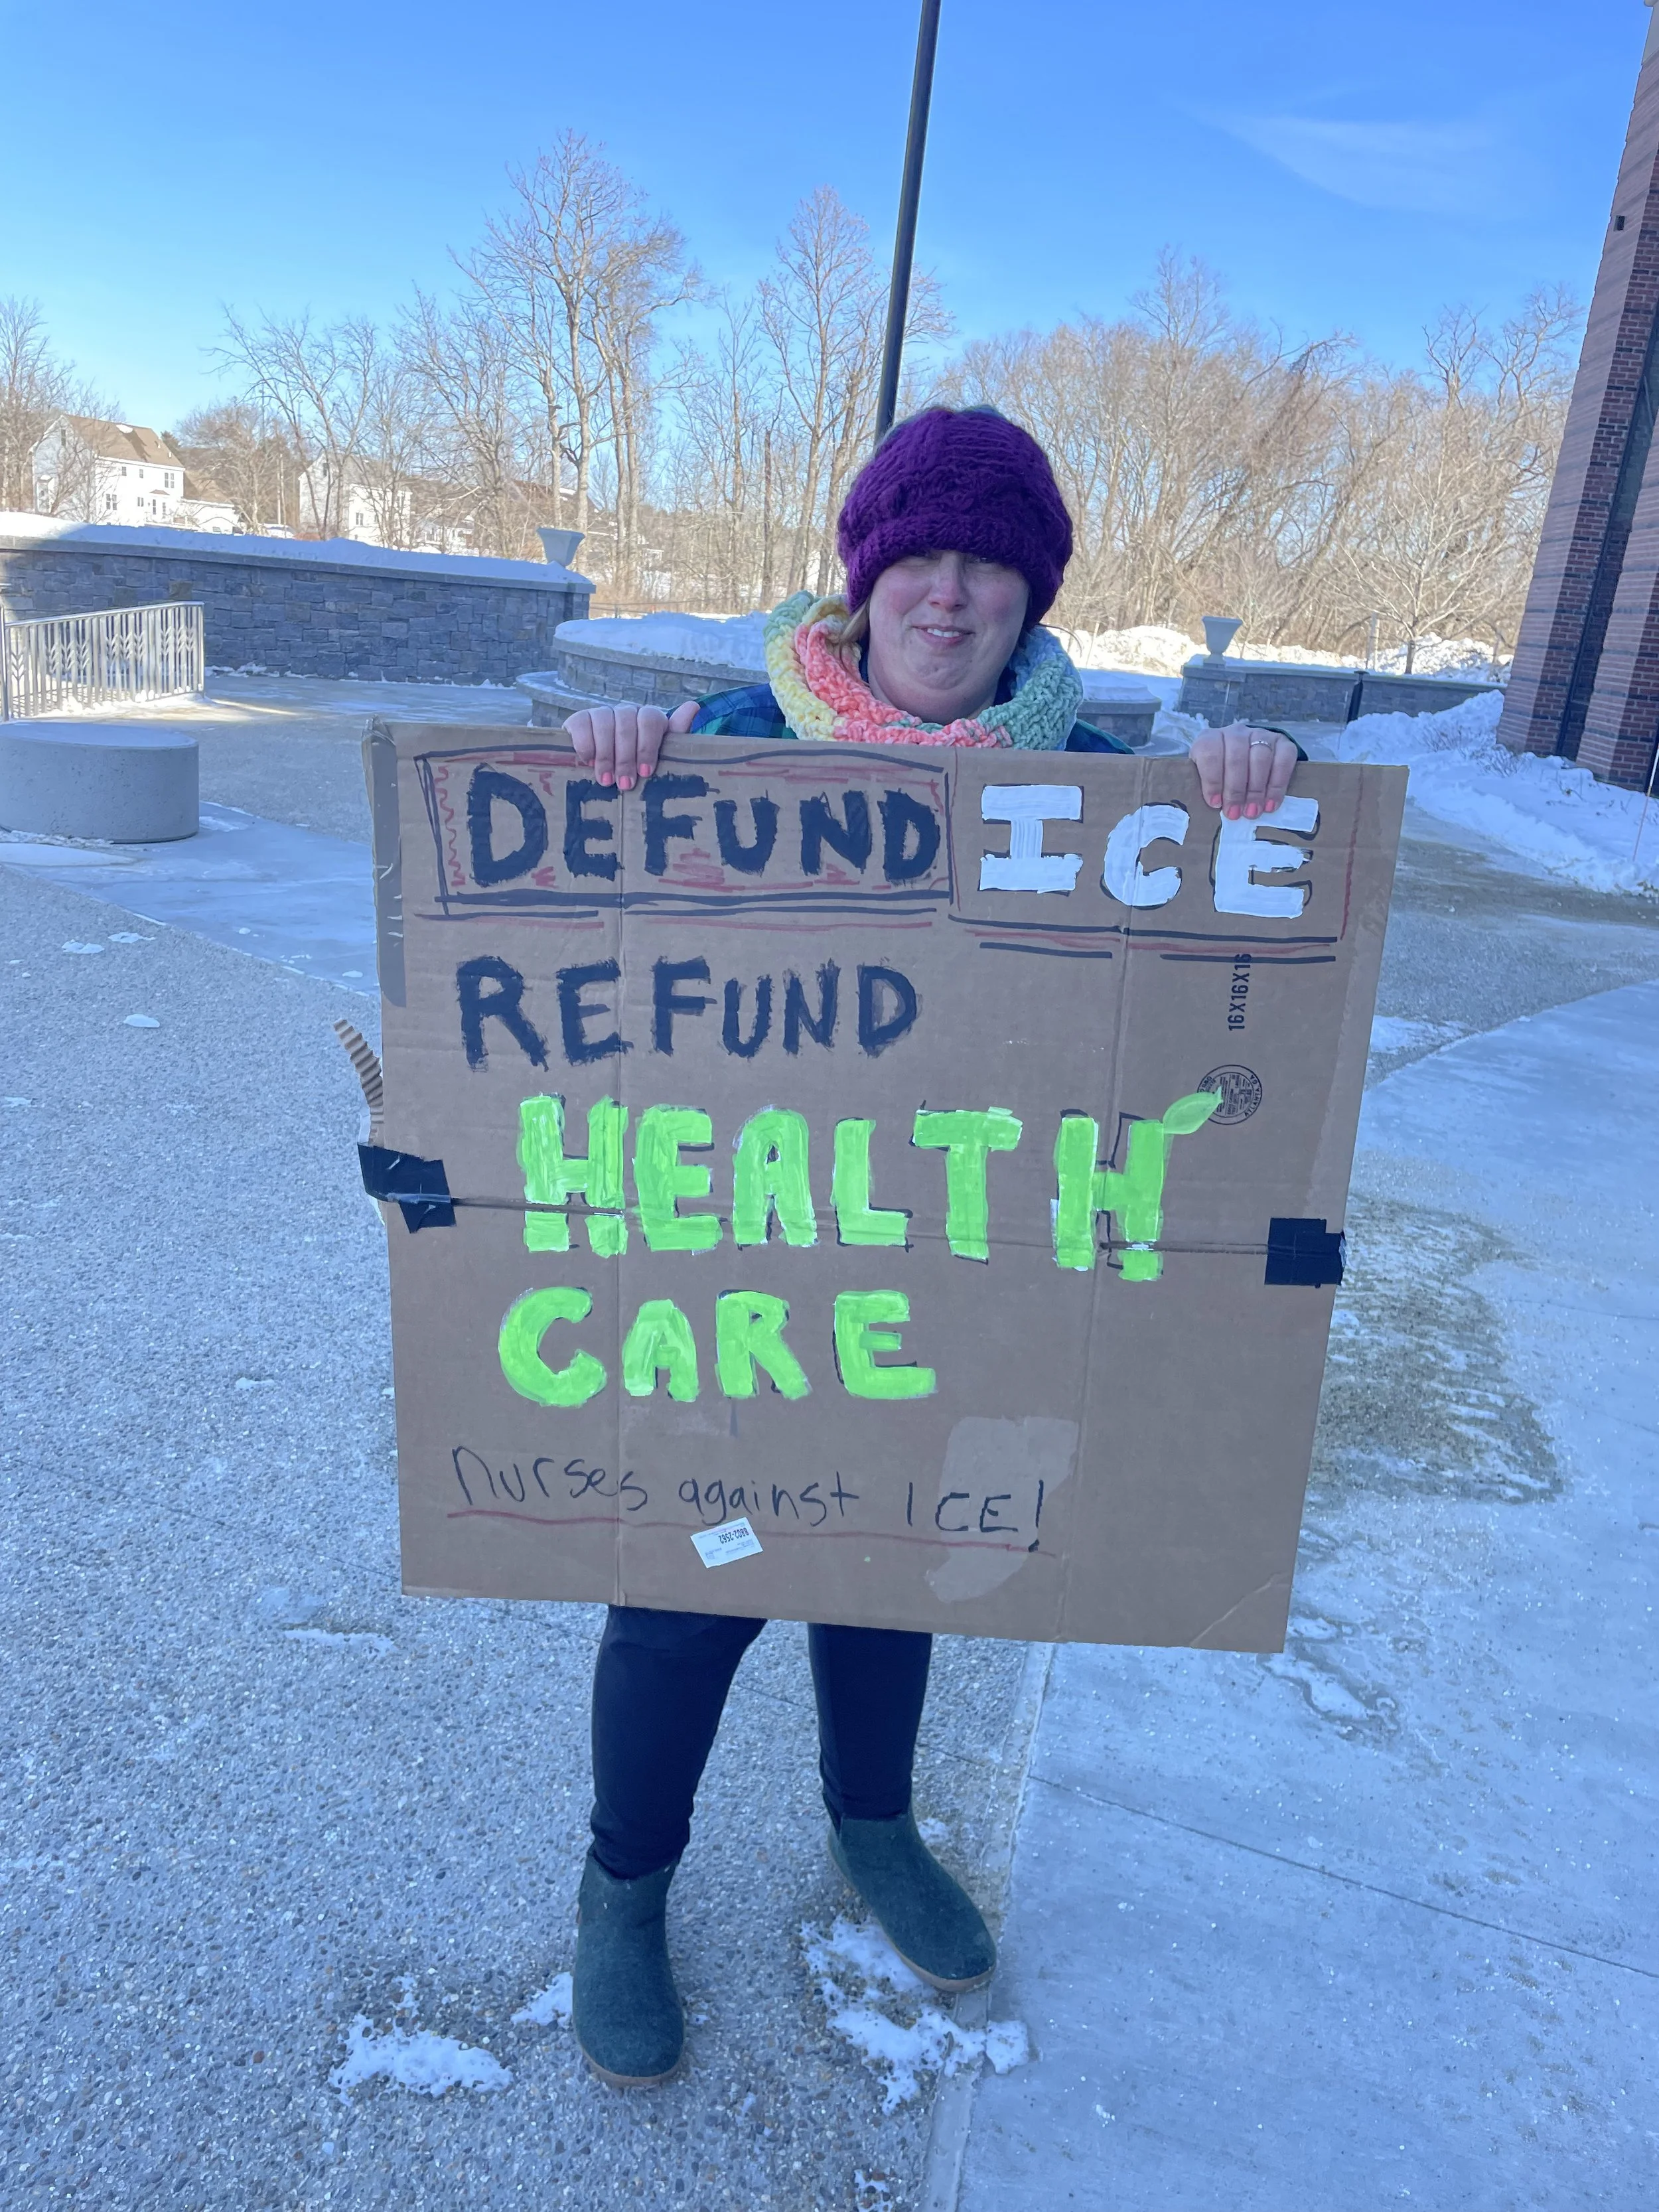 DEFUND ICE
REFUND
16X16X16
HEALTH
CARE
Nurses against ICE!